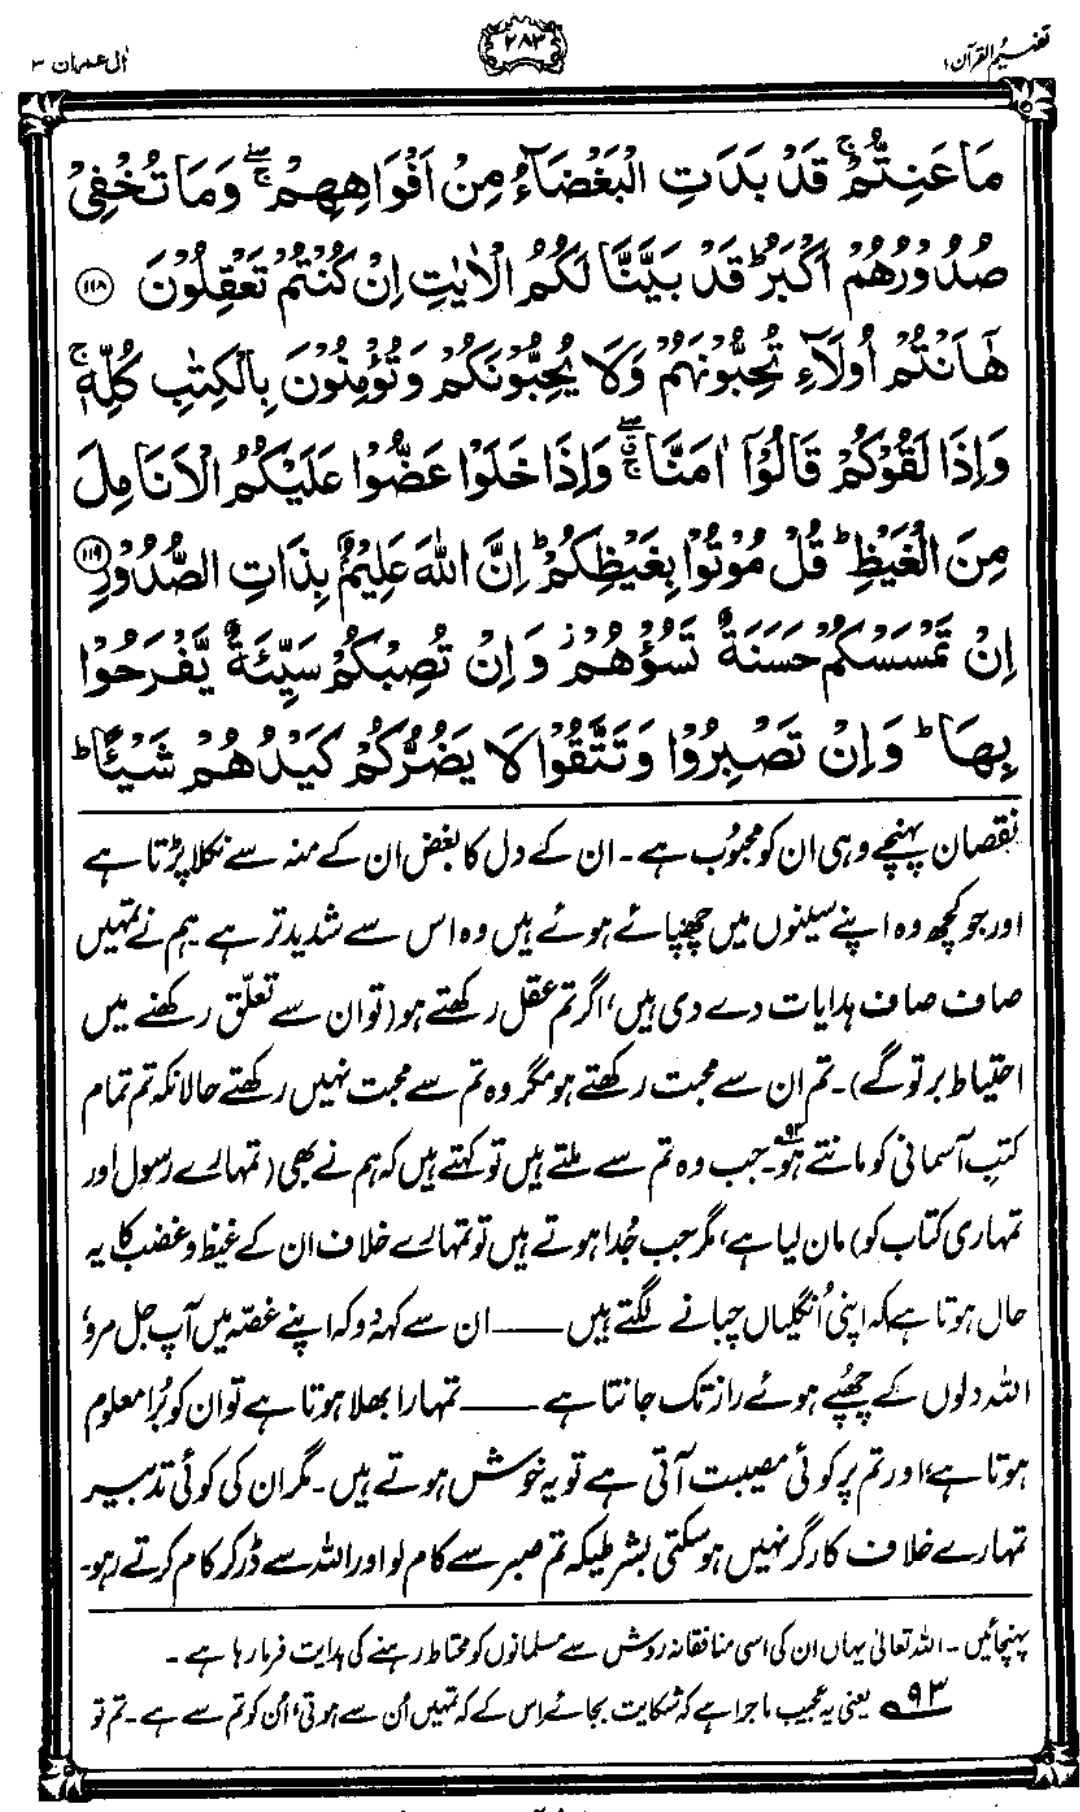 تفہیم القرآن ۱
۲۸۳
اٰل عمران ۳
مَا عَنِتُّمْ ۚ قَدْ بَدَتِ الْبَغْضَآءُ مِنْ اَفْوَاهِهِمْ ۖۚ وَمَا تُخْفِیْ
صُدُوْرُهُمْ اَكْبَرُ ؕ قَدْ بَیَّنَّا لَكُمُ الْاٰیٰتِ اِنْ كُنْتُمْ تَعْقِلُوْنَ ﴿۱۱۸﴾
هٰۤاَنْتُمْ اُولَآءِ تُحِبُّوْنَهُمْ وَلَا یُحِبُّوْنَكُمْ وَتُؤْمِنُوْنَ بِالْكِتٰبِ كُلِّهٖ ۚ
وَاِذَا لَقُوْكُمْ قَالُوْۤا اٰمَنَّا ۖۗۚ وَاِذَا خَلَوْا عَضُّوْا عَلَیْكُمُ الْاَنَامِلَ
مِنَ الْغَیْظِ ؕ قُلْ مُوْتُوْا بِغَیْظِكُمْ ؕ اِنَّ اللّٰهَ عَلِیْمٌۢ بِذَاتِ الصُّدُوْرِ ﴿۱۱۹﴾
اِنْ تَمْسَسْكُمْ حَسَنَةٌ تَسُؤْهُمْ ز وَاِنْ تُصِبْكُمْ سَیِّئَةٌ یَّفْرَحُوْا
بِهَا ؕ وَاِنْ تَصْبِرُوْا وَتَتَّقُوْا لَا یَضُرُّكُمْ كَیْدُهُمْ شَیْـًٔا ؕ
نقصان پہنچے وہی ان کو محبُوب ہے۔ ان کے دل کا بغض ان کے منہ سے نکلا پڑتا ہے
اور جو کچھ وہ اپنے سینوں میں چھُپائے ہوئے ہیں وہ اس سے شدید تر ہے۔ ہم نے تمہیں
صاف صاف ہدایات دے دی ہیں، اگر تم عقل رکھتے ہو (تو ان سے تعلّق رکھنے میں
احتیاط برتو گے)۔ تم ان سے محبت رکھتے ہو مگر وہ تم سے محبت نہیں رکھتے حالانکہ تم تمام
کتبِ آسمانی کو مانتے ہو۹۲۔ جب وہ تم سے ملتے ہیں تو کہتے ہیں کہ ہم نے بھی (تمہارے رسول اور
تمہاری کتاب کو) مان لیا ہے، مگر جب جُدا ہوتے ہیں تو تمہارے خلاف ان کے غیظ و غضب کا یہ
حال ہوتا ہے کہ اپنی اُنگلیاں چبانے لگتے ہیں —— ان سے کہہ دو کہ اپنے غصّہ میں آپ جل مرو،
اللہ دلوں کے چھُپے ہوئے راز تک جانتا ہے —— تمہارا بھلا ہوتا ہے تو ان کو بُرا معلوم
ہوتا ہے، اور تم پر کوئی مصیبت آتی ہے تو یہ خوش ہوتے ہیں۔ مگر ان کی کوئی تدبیر
تمہارے خلاف کارگر نہیں ہو سکتی بشرطیکہ تم صبر سے کام لو اور اللہ سے ڈر کر کام کرتے رہو۔
پہنچائیں۔ اللہ تعالیٰ یہاں ان کی اسی منافقانہ روش سے مسلمانوں کو محتاط رہنے کی ہدایت فرما رہا ہے۔
۹۳ یعنی یہ عجیب ماجرا ہے کہ شکایت بجائے اس کے کہ تمہیں اُن سے ہوتی، اُن کو تم سے ہے۔ تم تو